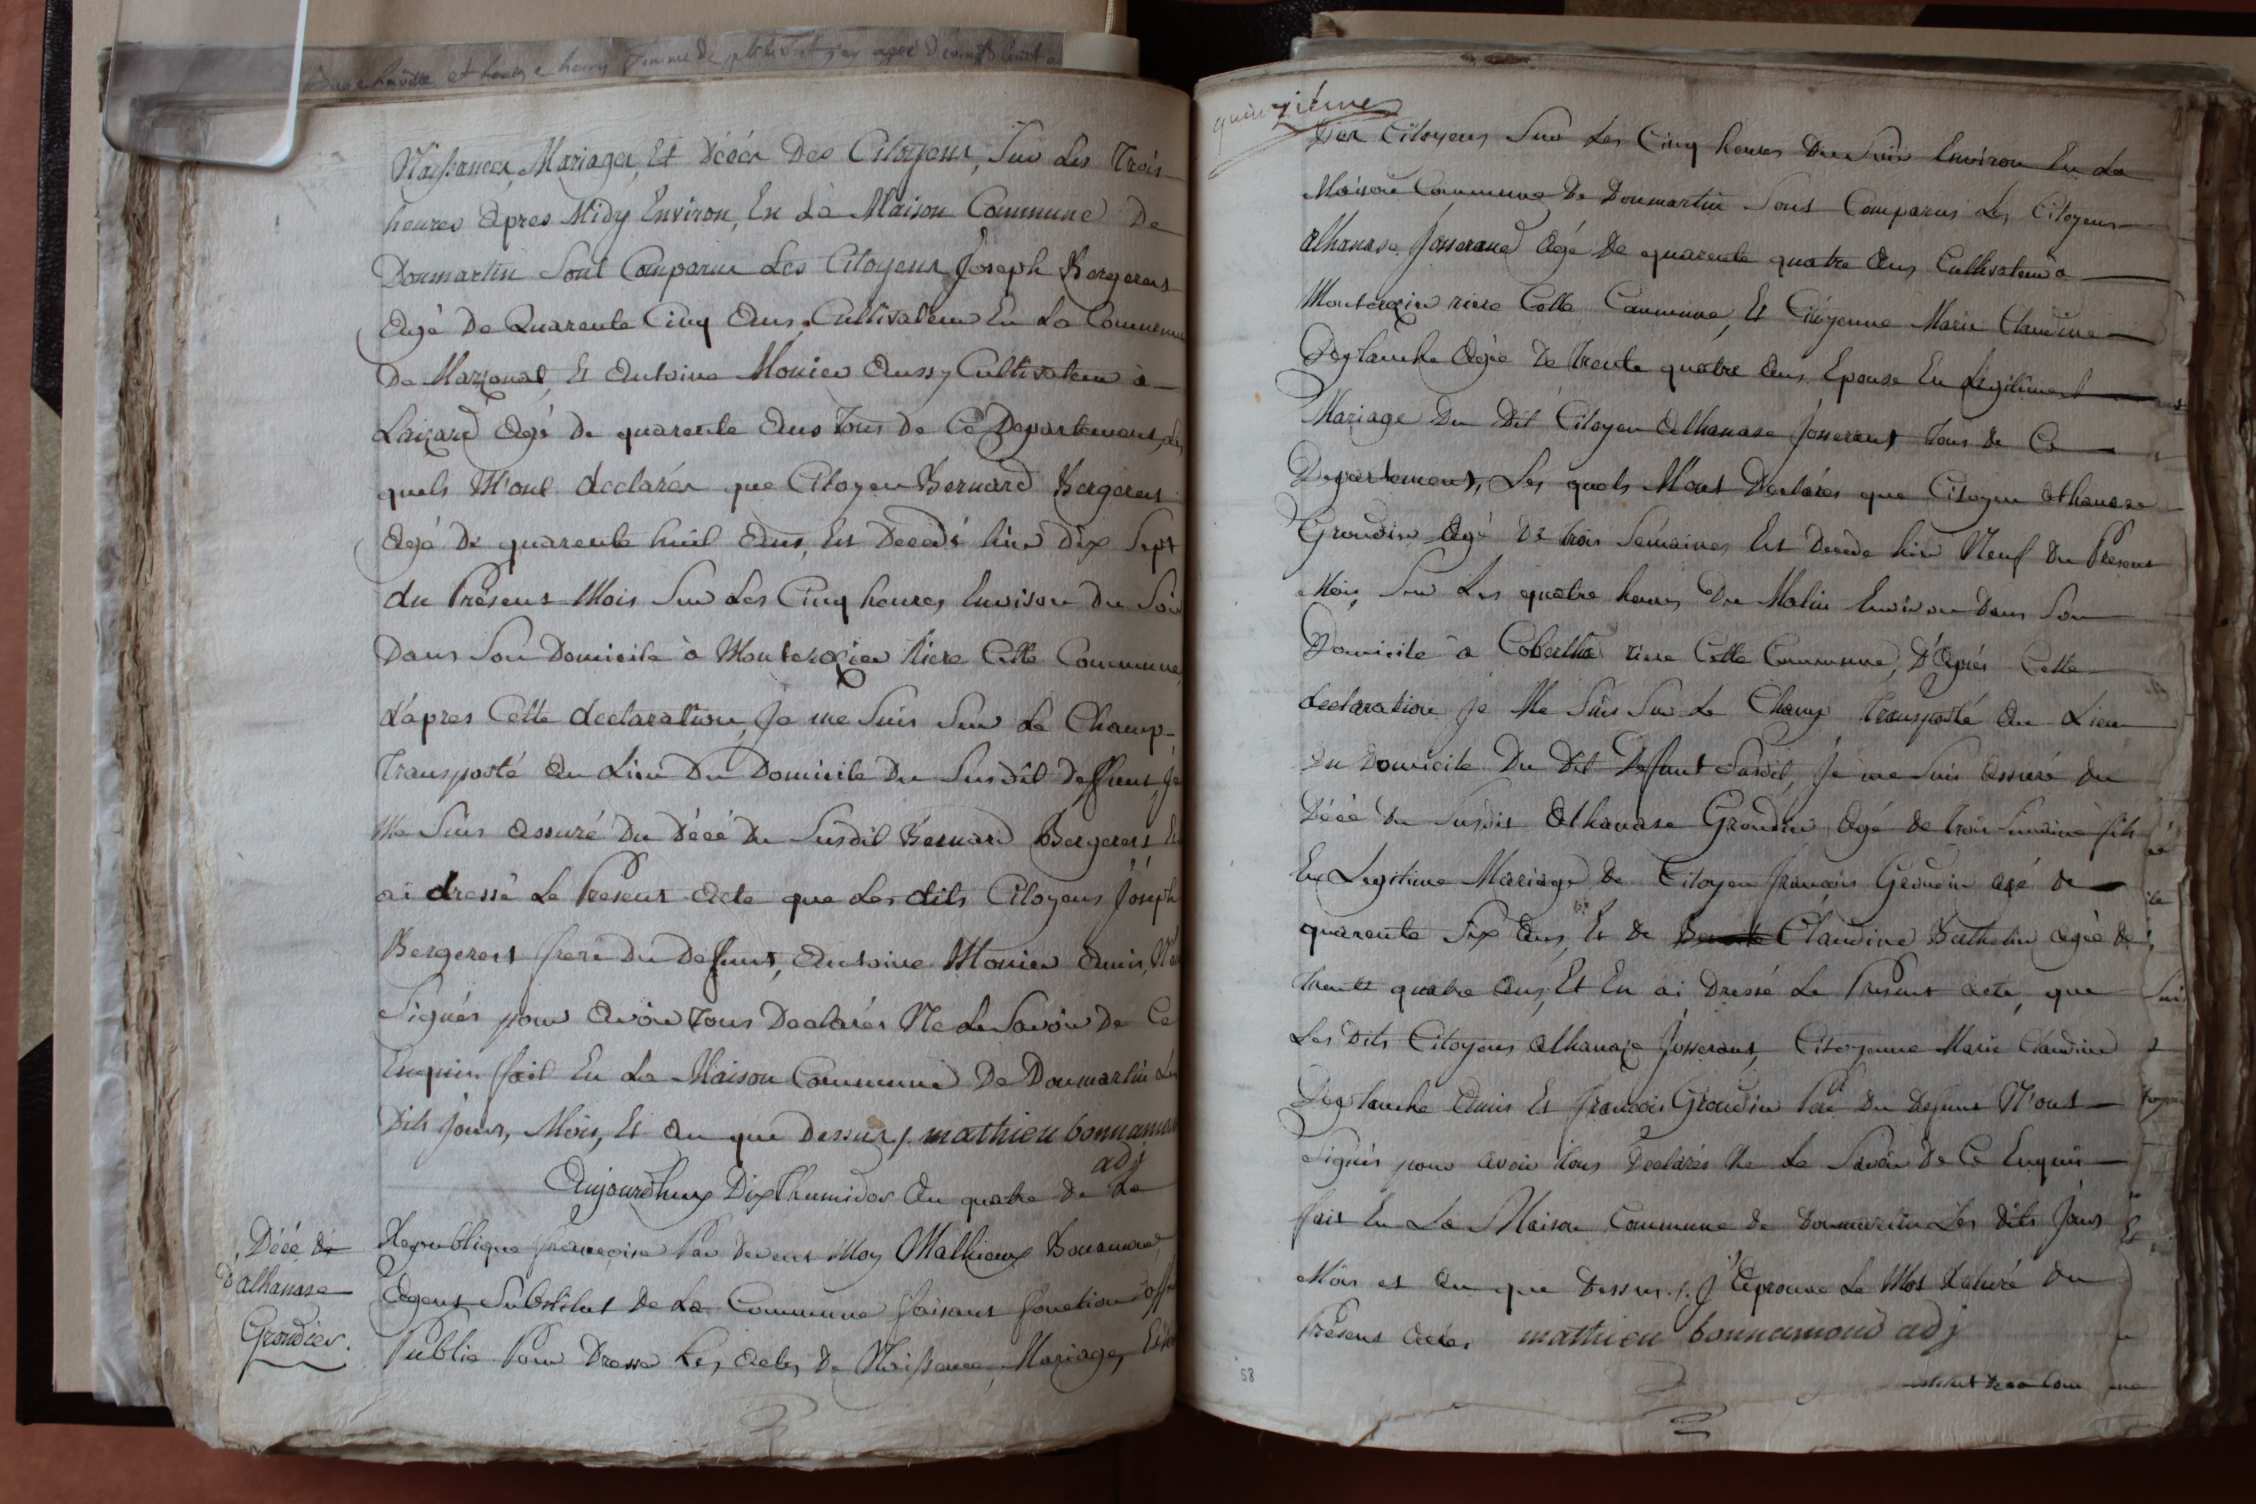 Naissances, Mariages, Et Décés Des Citoyens, Sur Les Trois
heures apres Midy Environ, En La Maison Commune De
Donmartin Sont Comparus Les Citoyens Joseph Bergeret
agé De Quarente Cinq ans, Cultivateur En La Commune
De Marzonat, Et Antoine Monier aussy Cultivateur à
Laizard agé de quarente ans Tous de Ce Departement, Les
quels M'ont declarés que Citoyen Bernard Bergeret
agé De quarente huit ans, Est Decedé hier Dix Sept
du Présent Mois Sur Les Cinq heures Environ Du Soir
Dans Son Domicile à Monterozier riere Cette Commune,
d'apres Cette declaration, Je me Suis Sur Le Champ
Transporté au Lieu Du Domicile Du Susdit Deffunt, Je
Me Suis assuré Du Décé Du Susdit Bernard Bergeret Et
ai dressé Le Present acte que Les dits Citoyens Joseph
Bergeret frere Du Defunt, Antoine Monier amis, N'ont
Signés pour avoir Tous Declarés Ne Le Savoir De Ce
Enquis. fait En La Maison Commune De Donmartin Les
Dits Jours, Mois, Et an que Dessus ./. mathieu bonnamour
adj
Aujourdhuy Dix Thermidor An quatre De La
Decé De
d'athanase
Grondier.
Republique françoise Par Devent Moy Mathieux Bonamour
Agent Substitut De La Commune faisant fonction d'off
Public Pour Dresser Les actes De Naissance, Mariages, Et
quinzième
Des Citoyens Sur Les Cinq heures Du Soir Environ En La
Maison Commune De Donmartin Sont Comparus Les Citoyens
Athanase Josserand agé De quarente quatre ans Cultivateur à
Monterozier riere Cette Commune, Et Citoyenne Marie Claudine
Deplanche agée De Trente quatre ans, Epouse En Legitime
Mariage Du Dit Citoyen Athanase Josserant Tous de Ce
Departement, Les quels M'ont Declarés que Citoyen Athanase
Grondin agé De trois Semaines Est Decede hier Neuf Du Présent
Mois Sur Les quatre heures Du Matin Environ Dans Son
Domicile à riere Cette Commune, D'après Cette
declaration Je Me Suis Sur Le Champ Transporté au Lieu
Du Domicile Du Dit Defunt Susdit, Je me Suis assuré du
Décé Du Susdit Athanase Grondin agé de trois Semaine fils
En Legitime Mariage De Citoyen françois Grondin agé de
quarente Six ans, Et de Claudine Berthelin agée de
trente quatre ans, Et En ai Dressé Le Present acte, que
Les Dits Citoyens Athanaze Josserant, Citoyenne Marie Claudine
Deplanche amis Et françois Grondin Pere Du Defunt N'ont
Signés pour avoir tous Declarés Ne Le Savoir De Ce Enquis
fait En La Maison Commune de Donmartin Les dits Jours
Mois et an que Dessus ./. J'approuve Le Mot Raturé du
Présent acte. mathieu bonnamour adj
58